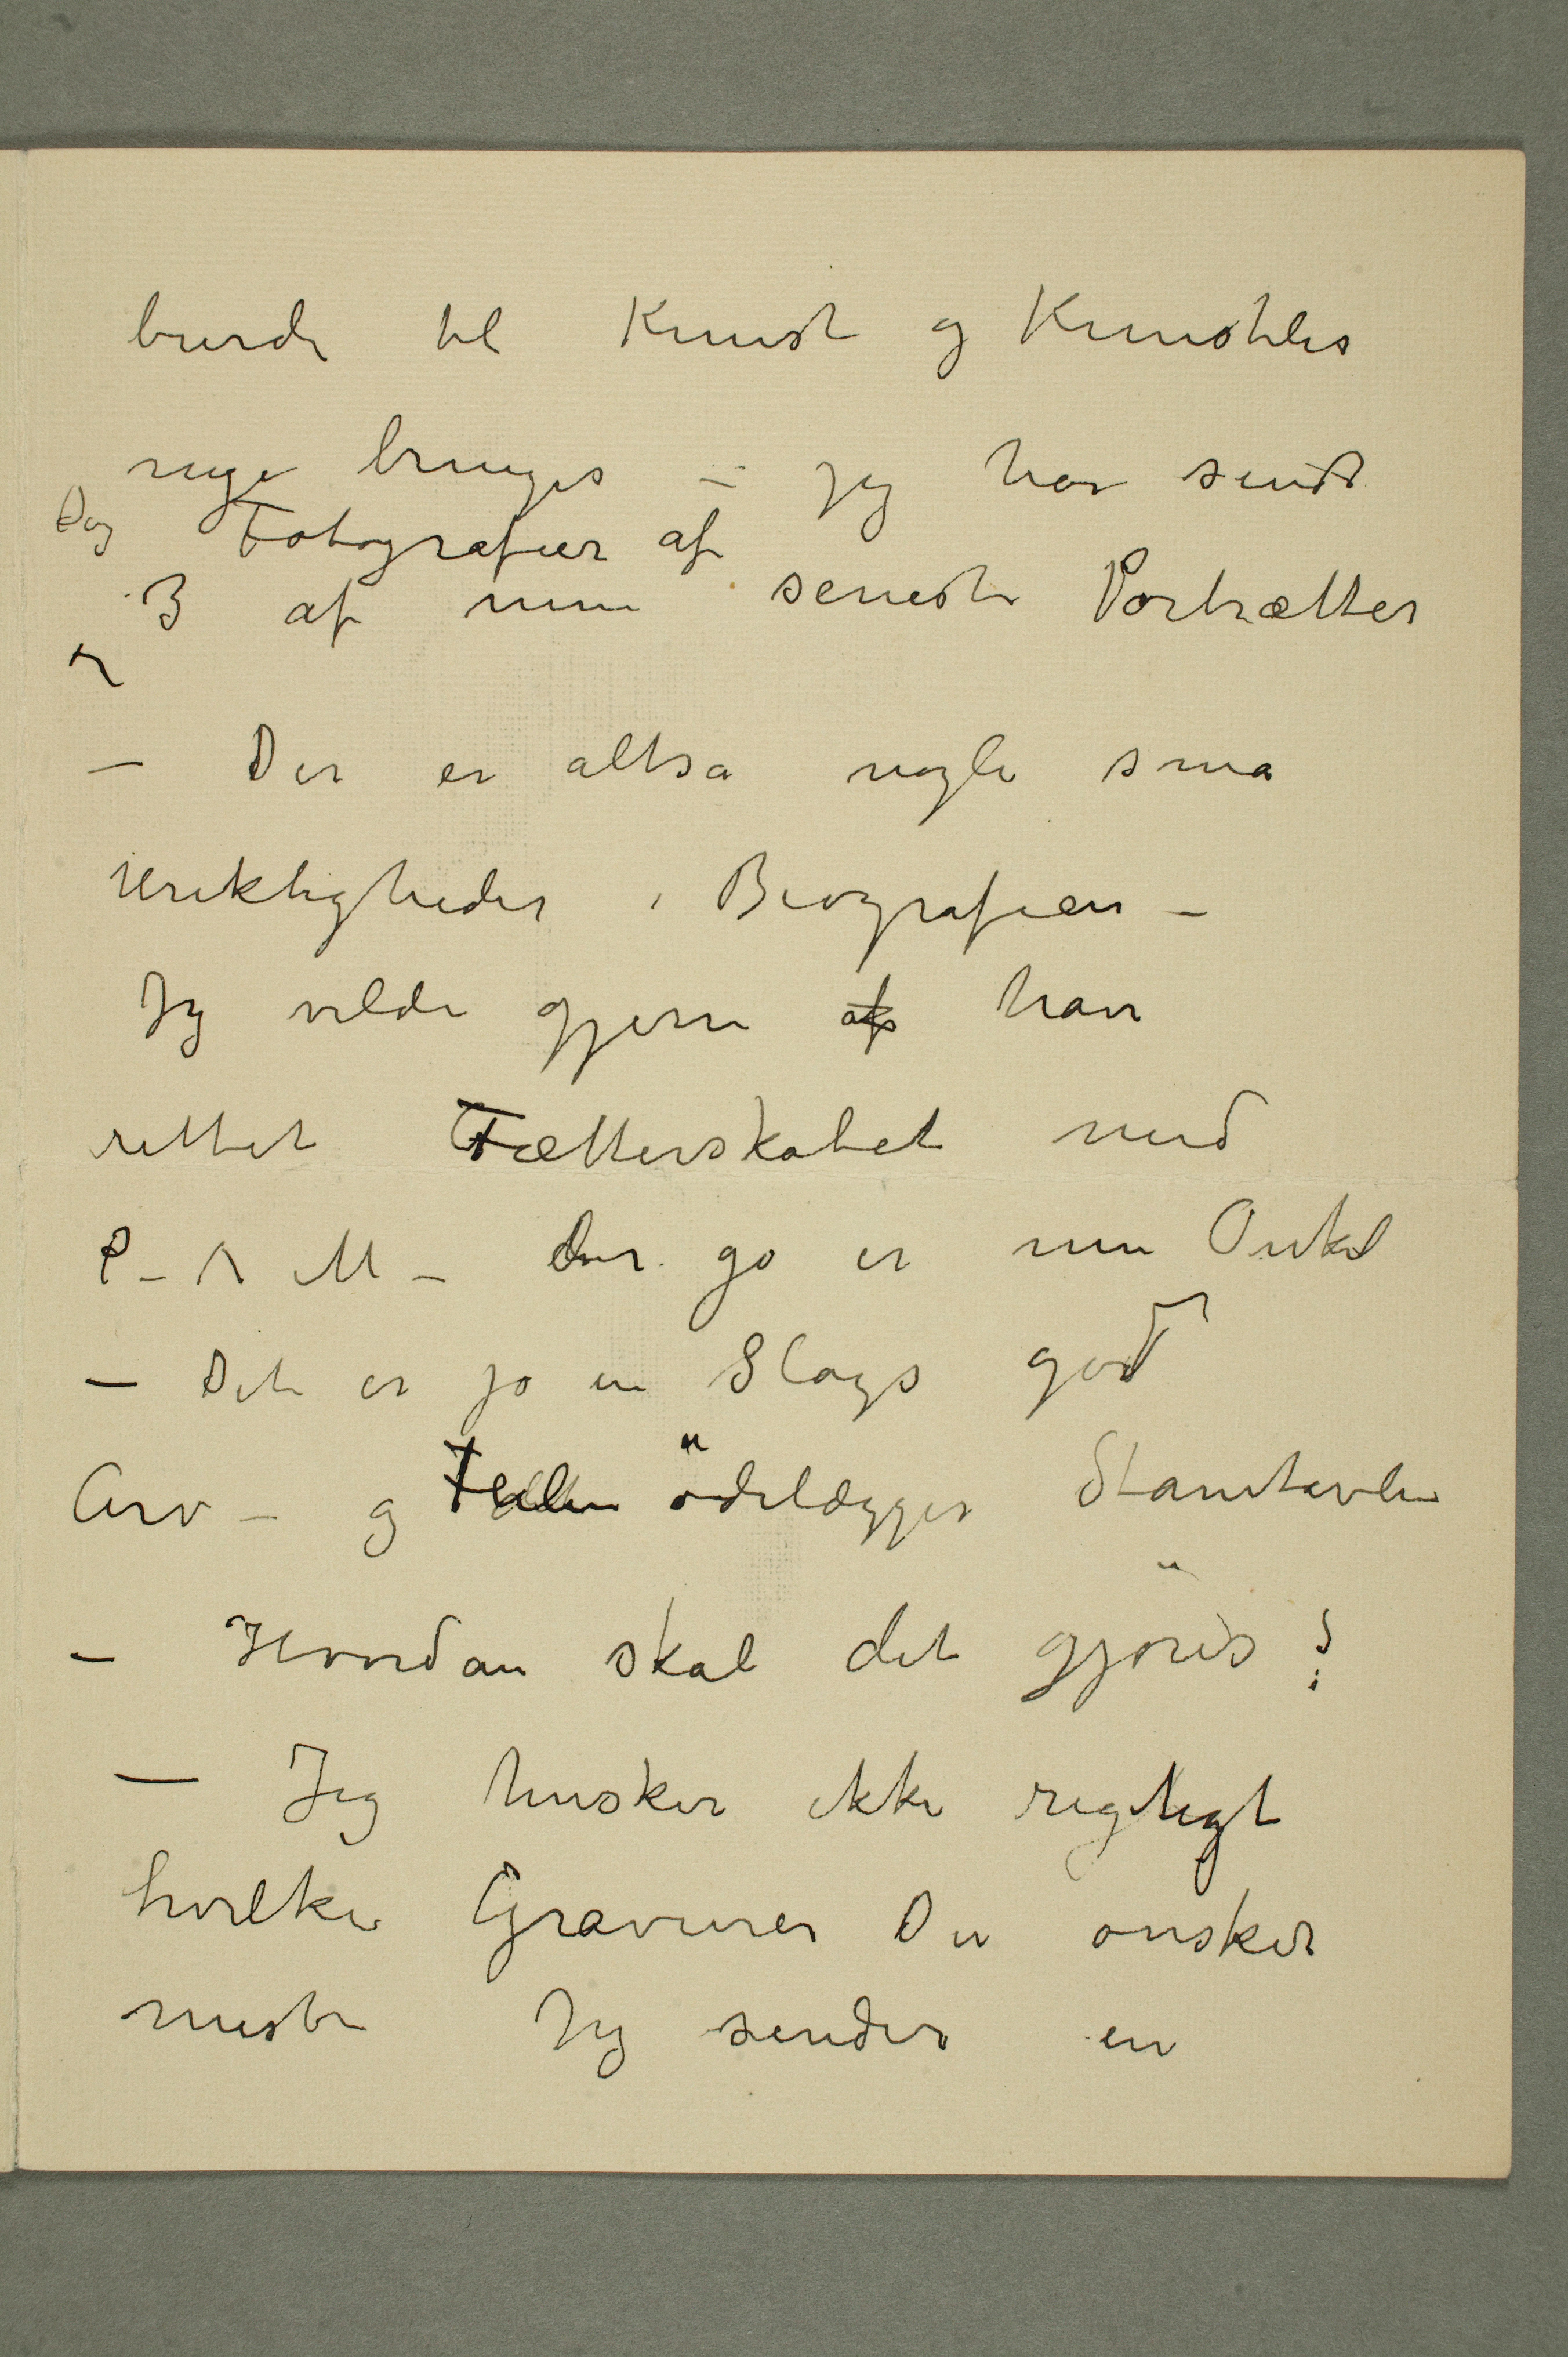 burde til Kunst og Kunstles
nye bruges – jeg har sendt
Dig Fotografier af
3 af mine seneste Portrætter
– Der er altsa nogle sma
urektigheder i Biografien –
Jeg vilde gjerne af have
rettet Fætterskabet med
P – A M – der jo er min Onkel
– Det er jo en Slags god
Arv – og Feilen ödelægger Stamtavlen
– Hvordan skal det gjöres?
– Jeg husker ikke rigtigt
hvilke Gravurer Du onsker
mest Jeg sender en